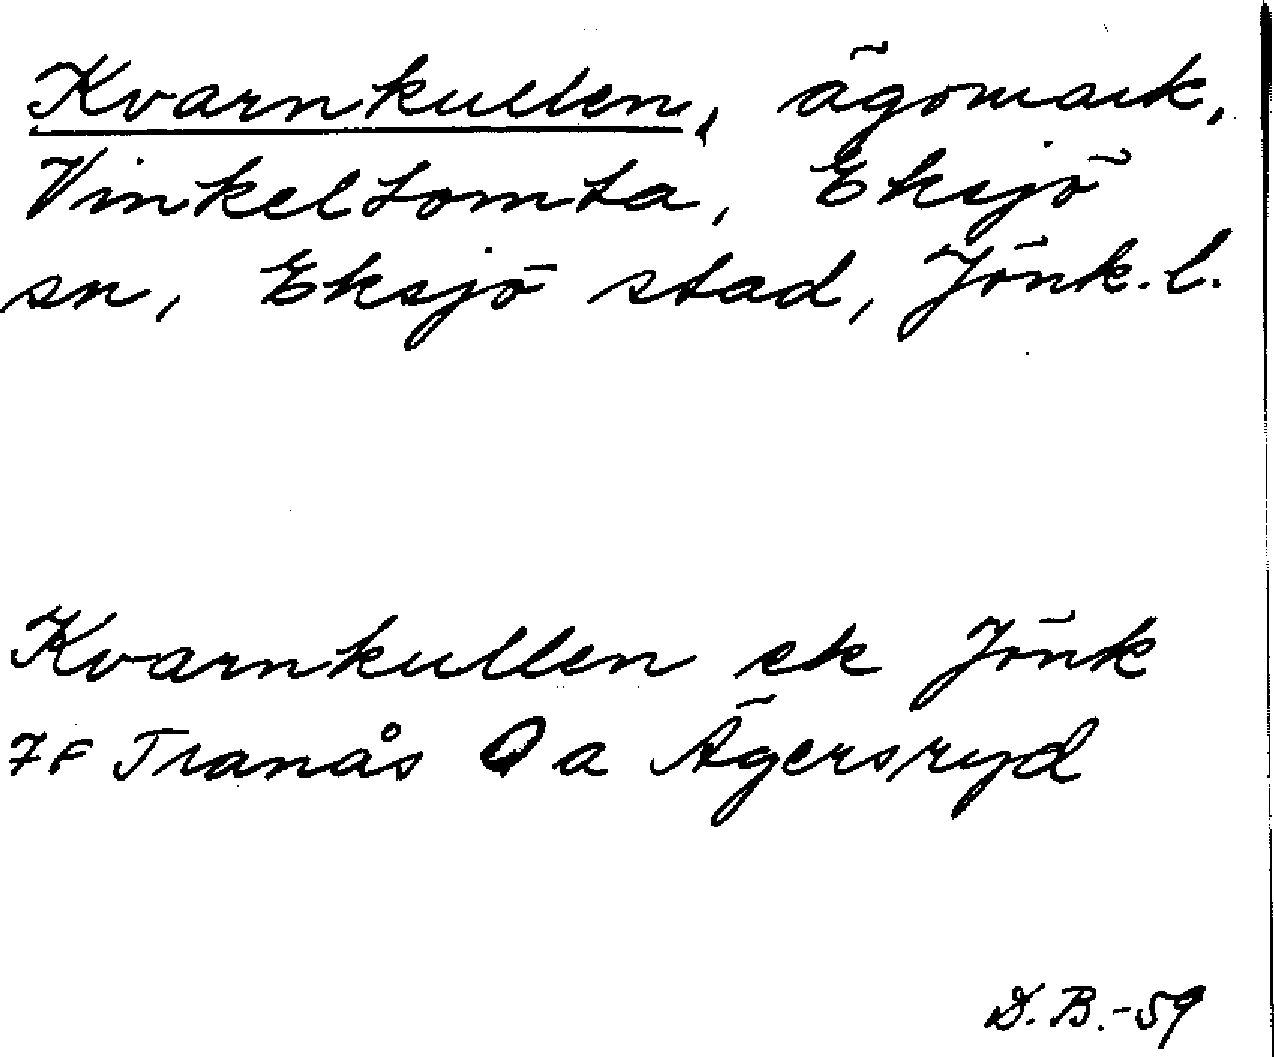 Kvarnkullen, ägomark,
Vinkeltomta, Eksjö
sn, Eksjö stad, Jönk. l.
Kvarnkullen ek Jönk
7F Tranås Q a Ägersryd
D.B.-59